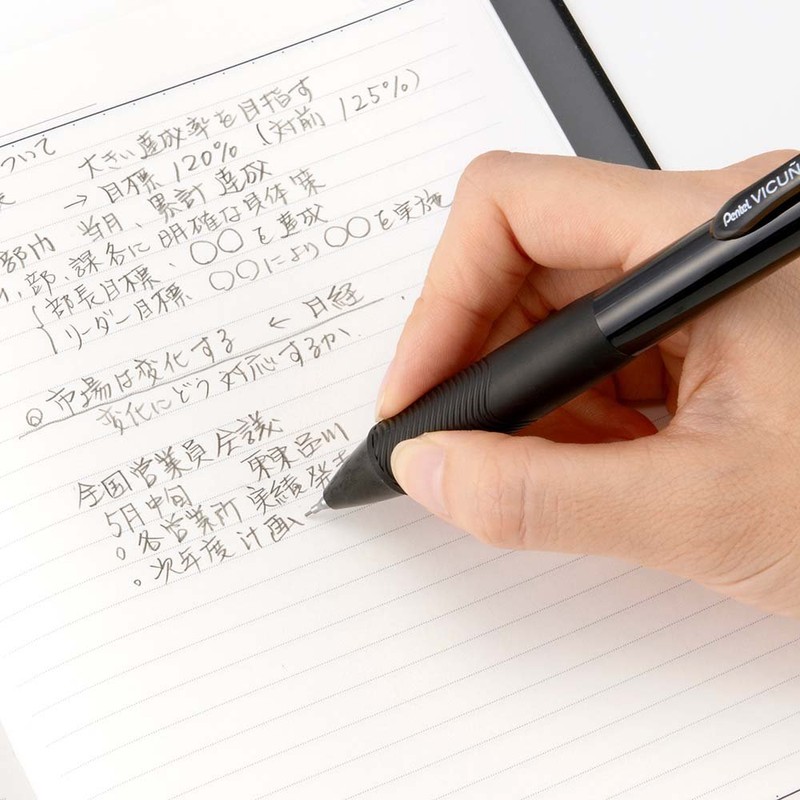 ついて
大きい達成率を目指す
→目標120% (対前 125%)
部内 当月、累計 達成
部、課各に明確な具体策
部長目標、○○を達成
リーダー目標 ○○により○○を実施
◎市場は変化する ← 日経
変化にどう対応するか、
全国営業員会議
5月中旬 東京品川
○各営業所 実績発表
○次年度計画
Pentel VICUÑ